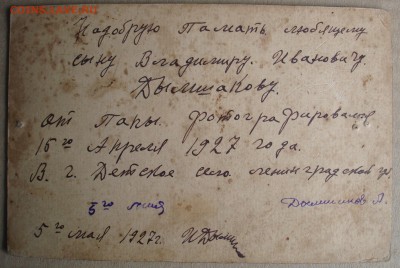 Надобрую Память любящему
сыну Владимиру. Ивановичу.
Дымшакову.
от Папы. фотографировался
16го Апреля 1927 года.
В. г. Детское село ленинградской гу.
5го мая
Дымшаков А.
5го мая 1927г.